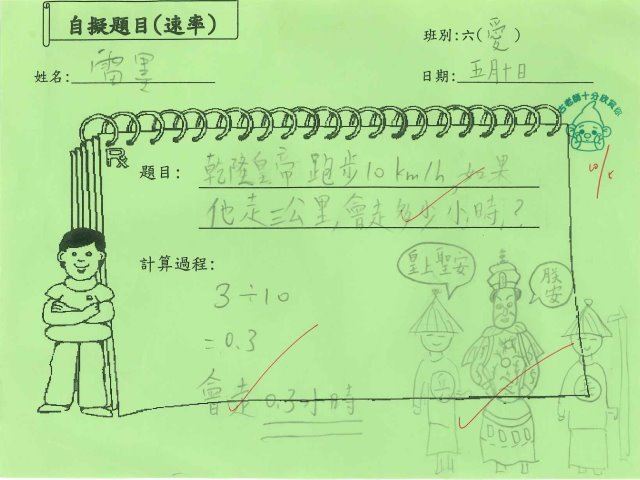 自擬題目(速率)
班別:六(愛)
姓名:雷墨
日期:五月十日
題目:乾隆皇帝跑步10 km/h 如果
他走三公里,會走多少小時?
計算過程:
3÷10
=0.3
會走0.3小時
皇上聖安
朕安